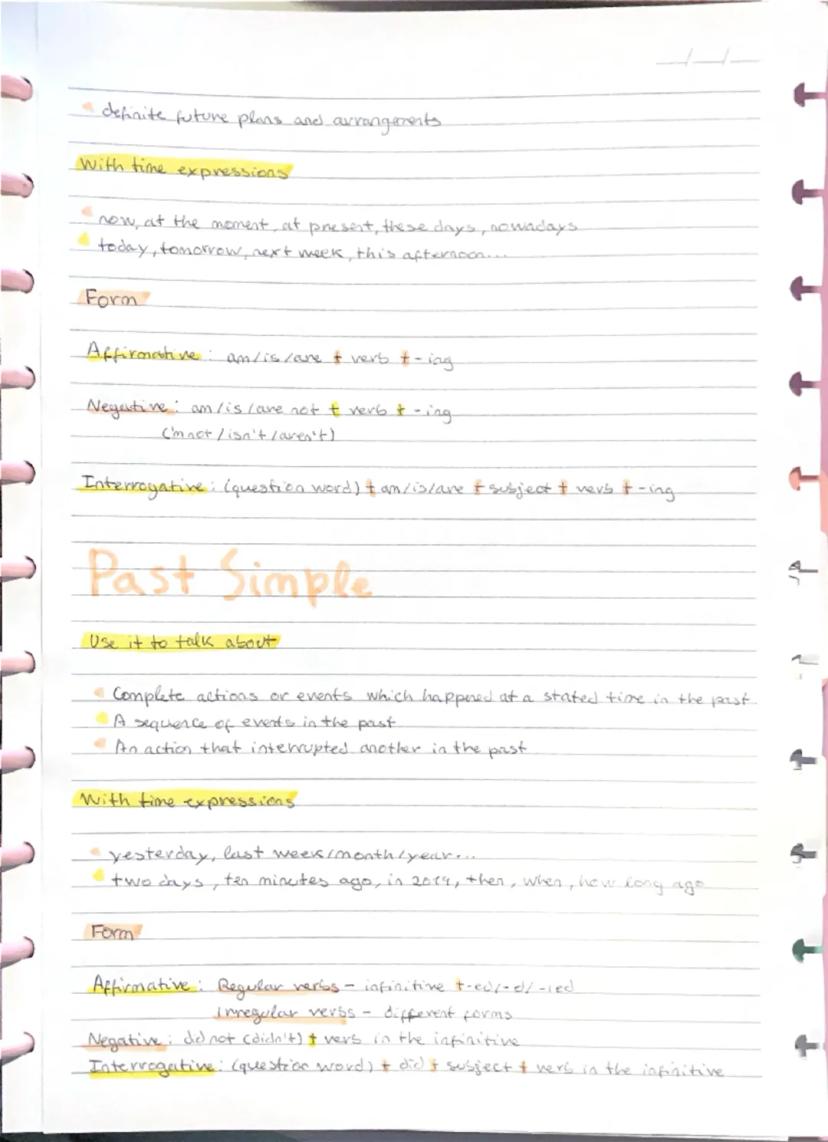 definite future plans and arrangements
With time expressions
now, at the moment, at present, these days, nowadays
today, tomorrow, next week, this afternoon...
Form
Affirmative: am/is/are + verb + -ing
Negative: am/is/are not + verb + -ing
('m not/isn't/aren't)
Interrogative: (question word) + am/is/are + subject + verb + -ing
Past Simple
Use it to talk about
Complete actions or events which happened at a stated time in the past
A sequence of events in the past
An action that interrupted another in the past
With time expressions
yesterday, last week/month/year...
two days, ten minutes ago, in 2019, then, when, how long ago
Form
Affirmative: Regular verbs - infinitive +-ed/-d/-ied
Irregular verbs - different forms
Negative: did not (didn't) + verb in the infinitive
Interrogative: (question word) + did + subject + verb in the infinitive